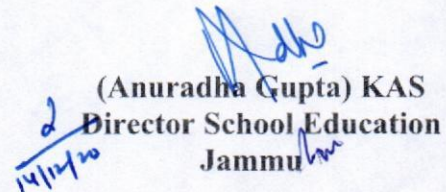 (Anuradha Gupta) KAS
Director School Education
Jammu
14/12/20